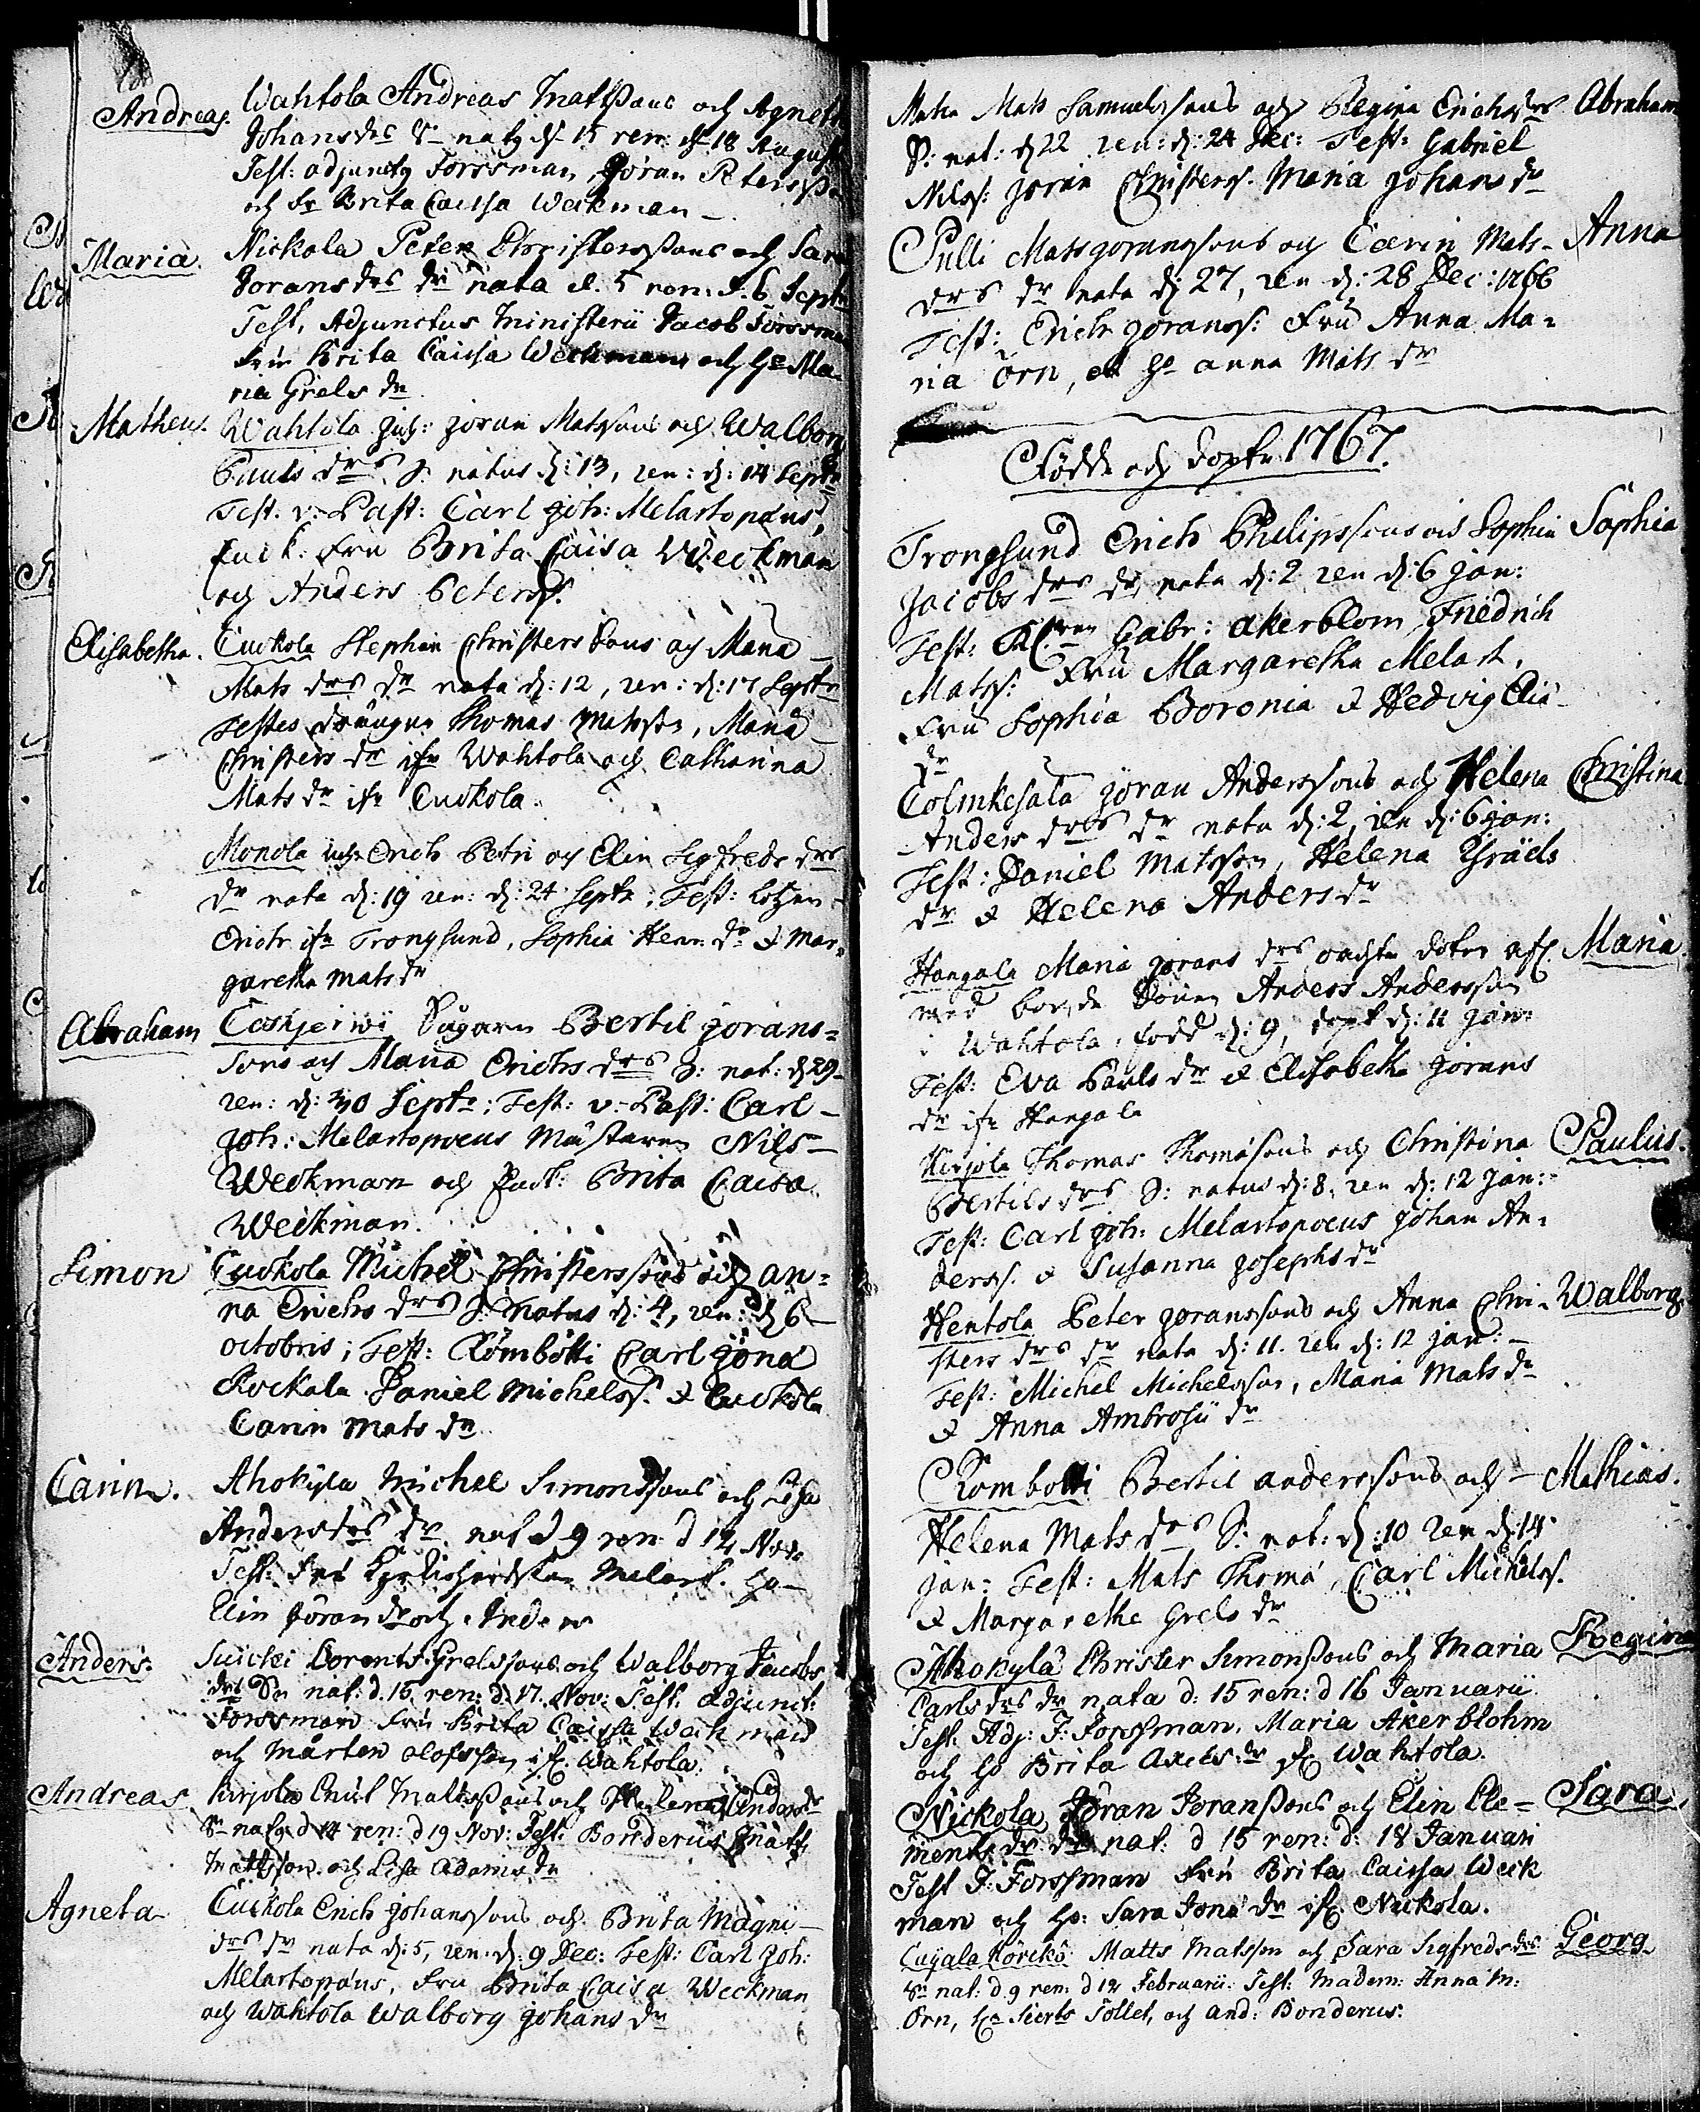 Andreas. Wahtola Andreas Mattssons och Agneta
Johansdrs Sn natg d 15 ren: d 18 August
Test: adjunctg Forssman, Jöran Peterss
och Fr Brita Caissa Weckman –
Maria. Nickola Peter Christerssons och Sara
Joransdrs dr nata d. 5 ren. d. 6 Septr
Test, Adjunctus Ministerii Jacob Forssman
Fru Brita Caissa Weckman och Ma-
ria Grels dr
Matheus. Wahtola Joran Matssons och Walborg
Pauls drs S: natus d: 13, ren: d: 14 Septr
Test. v. Past: Carl Joh: Melartopæus,
Fru Brita Caisa Weckman
och Anders Peterss.
Elisabetha. Cuckola Stephan Christers Sons och Maria
Mats drs dr nata d: 12, ren: d: 17 Septr
Testes drängen Thomas Matsson, Maria
Christers dr ifr Wahtola och Catharina
Mats dr ifr Cuckola.
Monola Erich Petri och Elin Sigfreds drs
dr nata d: 19 ren: d: 24 Septr; Test:
Erich ifr Trongsund, Sophia Henr: dr & Mar-
garetha Mats dr
Abraham Coskjerwi Bertil Jorans-
sons och Maria Erichs drs S: nat: d 29
ren: d: 30 Septr; Test: v. Past: Carl
Joh: Melartopoeus Mästaren Nils
Weckman och Brita Caisa
Weckman.
Simon Cuckola Michel Christerssons och An-
na Erichs drs S: natus d: 4, ren: d 6
octobris; Test: Römbötti Carl Jöna
Rockala Daniel Michelss. & Cuckola
Carin Mats dr
Carin. Ahokyla Michel Simonssons och Lisa
Andersdrs dr nat d 9 ren d 12 Nov
Test: Fru Melart.
Elin Jöran dr och Anders
Anders. Suickei Lorents Grelssons och Walborg Jacobs
drs Sn nat: d. 15. ren: d. 17. Nov: Test: Adjunct:
Forssman Fru Brita Caissa Weckman
och Mårten Olofsson ifr Wahtola.
Andreas Kirjola Mattssons och Helena Anders dr
Sn natg d 14 ren: d 19 Nov: Test: Bonderus Matt
Mattsson och Lisa Adams dr
Agneta Cuckola Erich Johanssons och Brita Magni
drs dr nata d: 5, ren: d: 9 Dec: Test: Carl Joh:
Melartopæus, Fru Brita Caisa Weckman
och Wahtola Walborg Johans dr
Mats Samuelssons och Regina Erichsdrs Abraham
S: nat: d 22 ren: d: 24 Dec: Test: Gabriel
Nilss: Joran Christers. Maria Johans dr
Pulli Mats Joranssons och Carin Mats- Anna
drs dr nata d: 27, ren d: 28 Dec: 1766
Test: Erich Joranss: Fru Anna Ma-
ria Örn, et Anna Mats dr
Födde och döpte 1767.
Trongsund Erich Philipssons och Sophia Sophia
Jacobs drs dr nata d: 2 ren d: 6 Jan:
Test: Gabr: Akerblom, Friedrich
Matss: Fru Margaretha Melart,
Fru Sophia Boronia & Hedvig Elis
dr
Colmkesala Joran Anderssons och Helena Christina
Anders drs dr nata d: 2, ren d: 6 Jan:
Test: Daniel Matsson, Helena Israels
dr & Helena Anders dr
Hangala Maria Jorans drs oächta dotter Maria.
med Anders Andersson
i Wahtola, född d: 9, döpt d: 11 Jan:
Test: Eva Pauls dr & Elisabetha Jorans
dr ifr Hangala
Kirjola Thomas Thomasons och Christina Paulus.
Bertils drs S: natus d: 8, ren d: 12 Jan:
Test: Carl Joh: Melartopoeus Johan An-
derss. & Susanna Josephs dr
Hentola Peter Joranssons och Anna Chri- Walborg
sters drs dr nata d: 11. ren d: 12 Jan:
Test: Michel Michelsson, Maria Mats dr
& Anna Ambrosii dr
Rombotti Bertil Anderssons och Mathias.
Helena Mats drs S: nat: d: 10 ren d: 14
Jan: Test: Mats Thoma, Carl Michelss.
& Margaretha Grels dr
Ahokylä Christer Simonssons och Maria Regina
Carls drs dr nata d: 15 ren: d 16 Januarii
Test: Adj: J: Forssman, Maria Akerblohm
och Brita Axels dr Wahtola.
Nickola Jöran Joranssons och Elin Cle- Sara
ments dr dr nat: d 15 ren: d: 18 Januari
Test J: Forssman Fru Brita Caissa Weck
man och Sara Jona dr Nickola.
Cugala Matts Matsson och Sara Sigfredsdrs Georg
Sn nat: d. 9 ren: d 12 Februarii: Test: Madem: Anna M:
Örn, Tollet, och And: Bonderus: